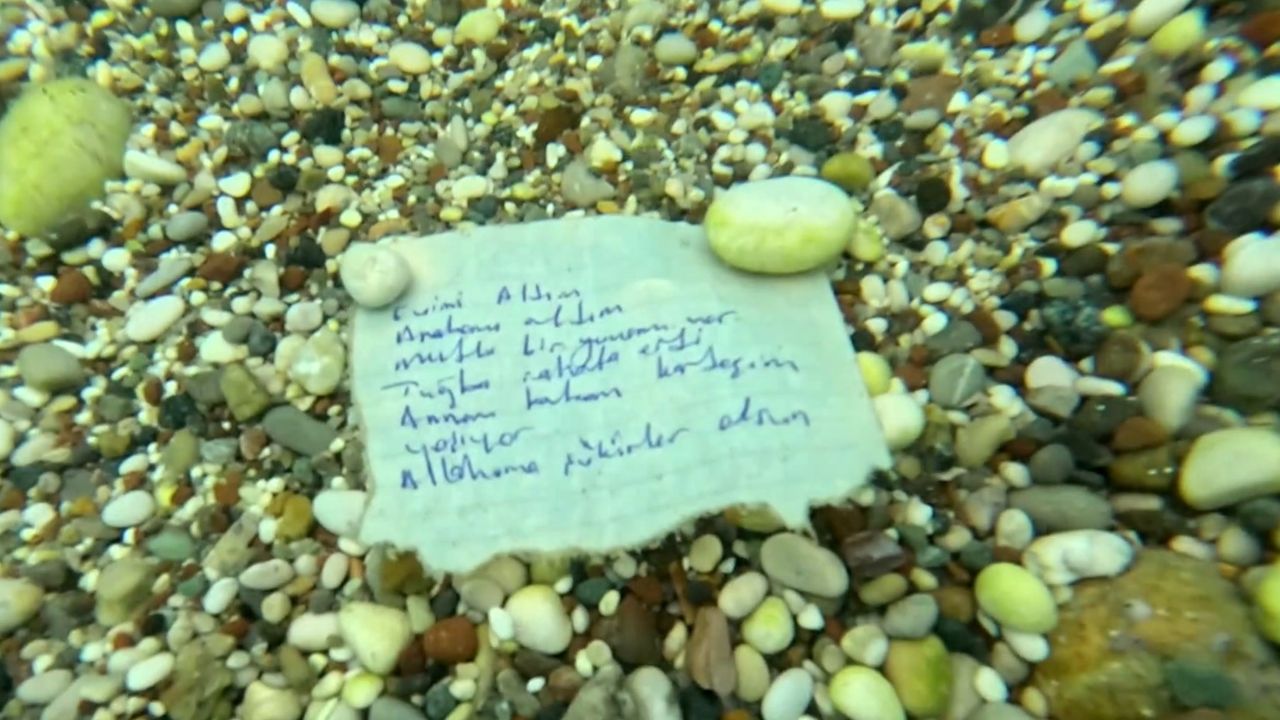 Evimi Aldım
Arabamı aldım
mutlu bir yuvam var
Tuğba rahata erdi
Annem babam kardeşim
yaşıyor
Allahıma şükürler olsun